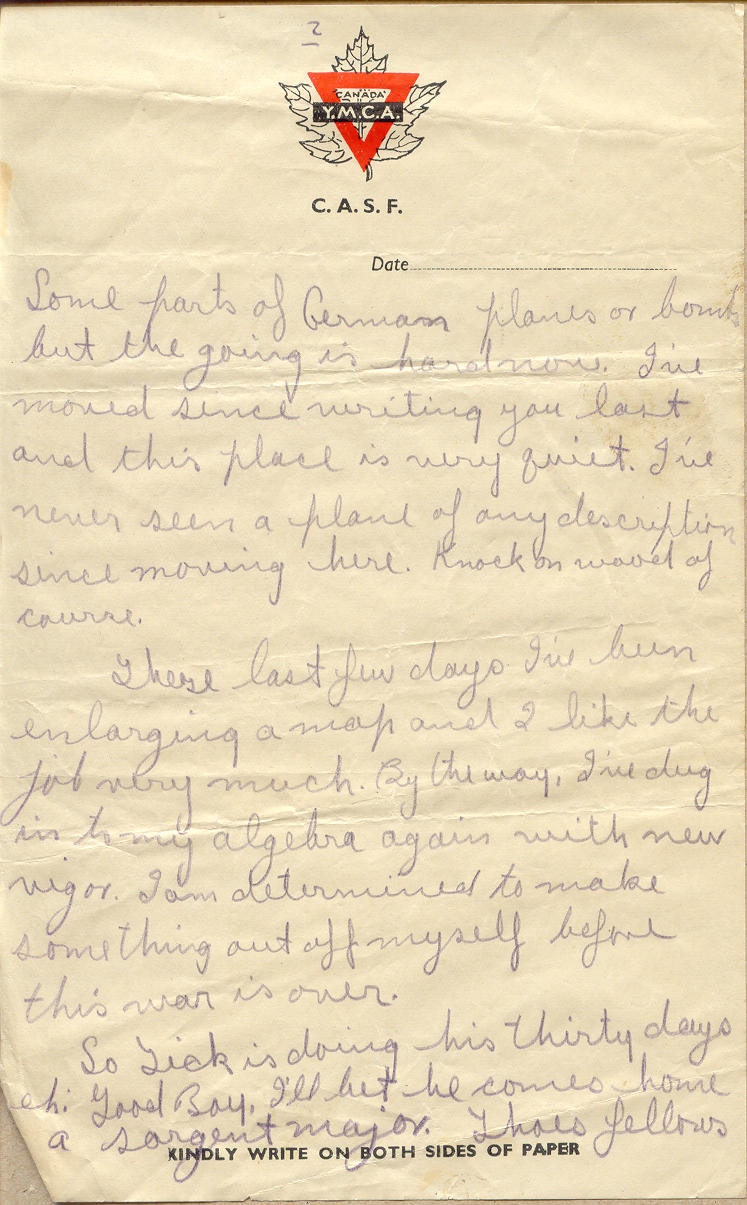 2
CANADA
Y.M.C.A.
C. A. S. F.
Date
Some parts of German planes or bombs
but the going is hard now. I've
moved since writing you last
and this place is very quiet. I've
never seen a plane of any description
since moving here. Knock on wood of
course.
These last few days I've been
enlarging a map and I like the
job very much. By the way, I've dug
in to my algebra again with new
vigor. I am determined to make
something out off myself before
this war is over.
So is doing his thirty days
eh. Good Boy, I'll bet he comes home
a sargent major. Thoes fellows
KINDLY WRITE ON BOTH SIDES OF PAPER